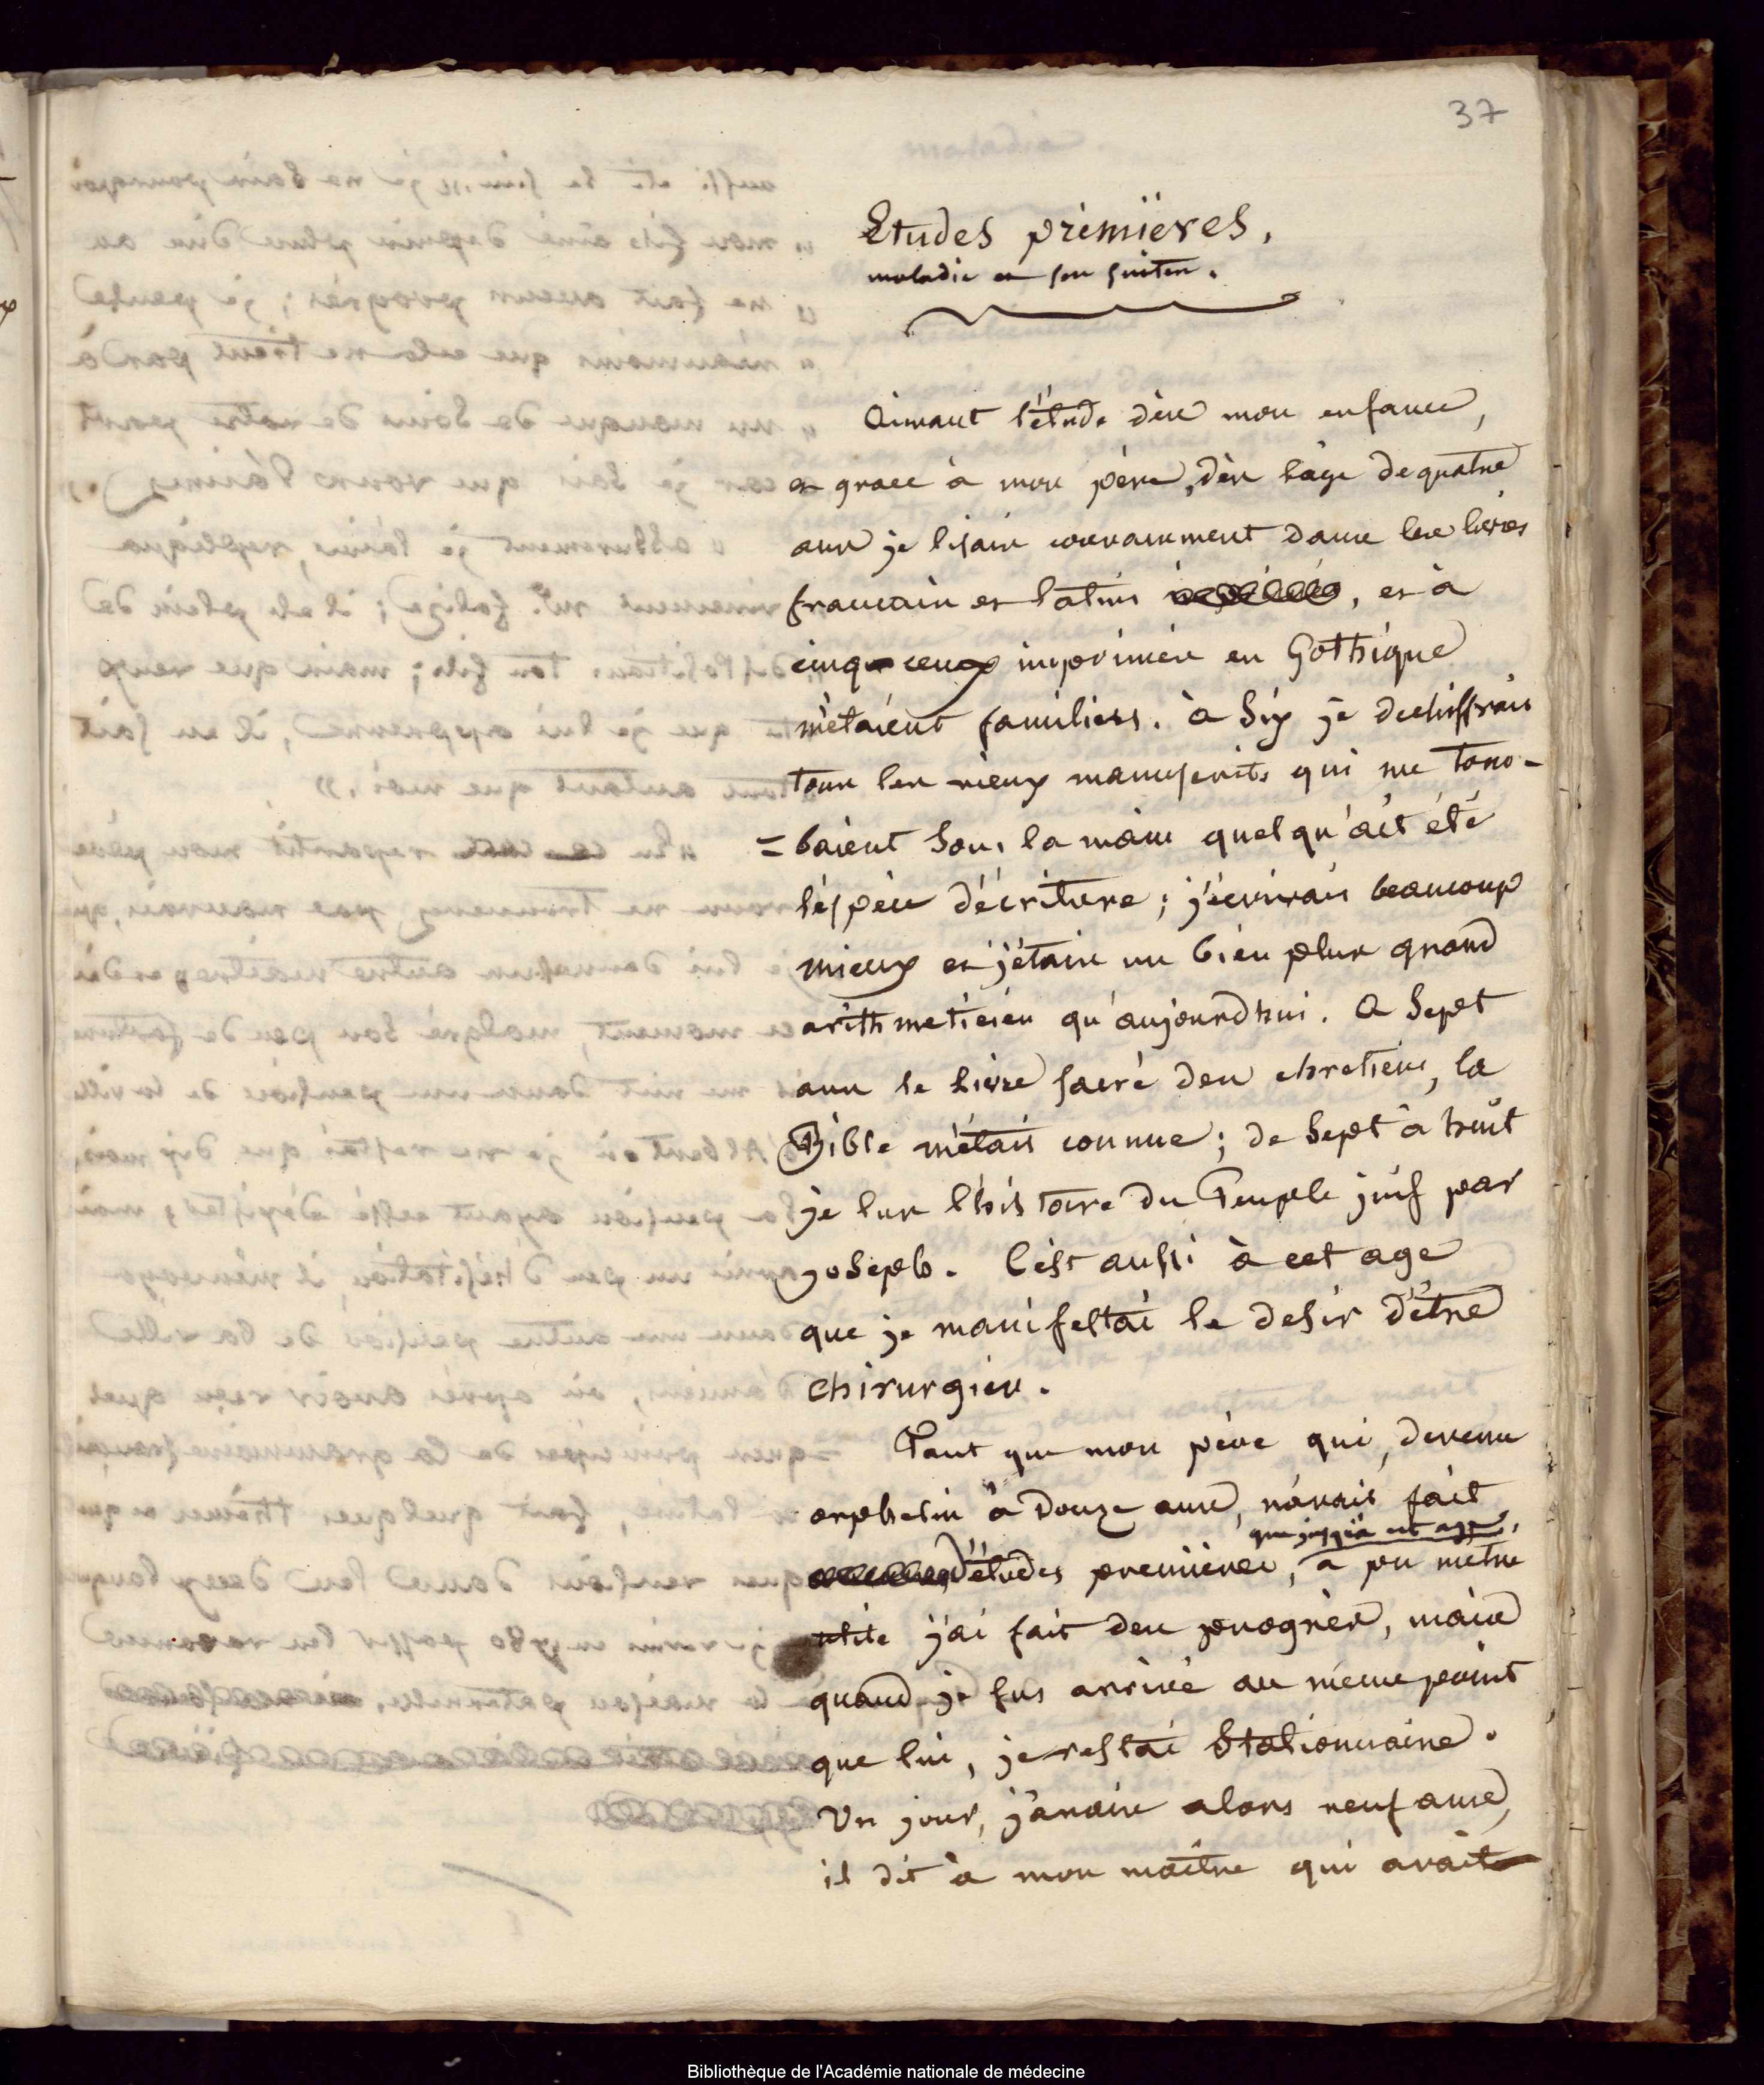 37
Etudes prèmières,
maladie et ses suites.
Aimant l'étude dès mon enfance,
et grace à mon père, dès l'age de quatre
ans je lisais couramment dans les livres
francais et latins, et à
cinq ceux imprimés en Gothique
m'etaient familiers. à six je dechiffrais
tous les vieux manuscrits qui me tom-
=baient sous la main quelqu'ait été
l'espèce d'écriture ; j'écrivais beaucoup
mieux et j'étais un bien plus grand
arithmeticien qu'aujourdhui. A sept
ans le livre sacré des chretiens, la
Bible m'etais connue ; de sept à huit
je lus l'histoire du Peuple juif par
joseph. C'est aussi à cet age
que je manifestai le desir d'être
chirurgien.
Tant que mon père qui, devenu
orphelin à douze ans, n'avait fait
que jusqu'à cet age,
d'études premières, a pu m'etre
utile j'ai fait des progrès, mais
quand je fus arrivé au même point
que lui, je restai stationnaire.
Un jour, j'avais alors neuf ans,
il dit à mon maître qui avait
Bibliothèque de l'Académie nationale de médecine